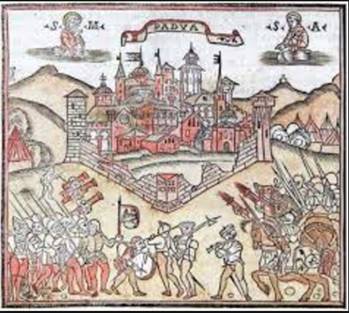 ·S· M·
PADVA
·S· A·